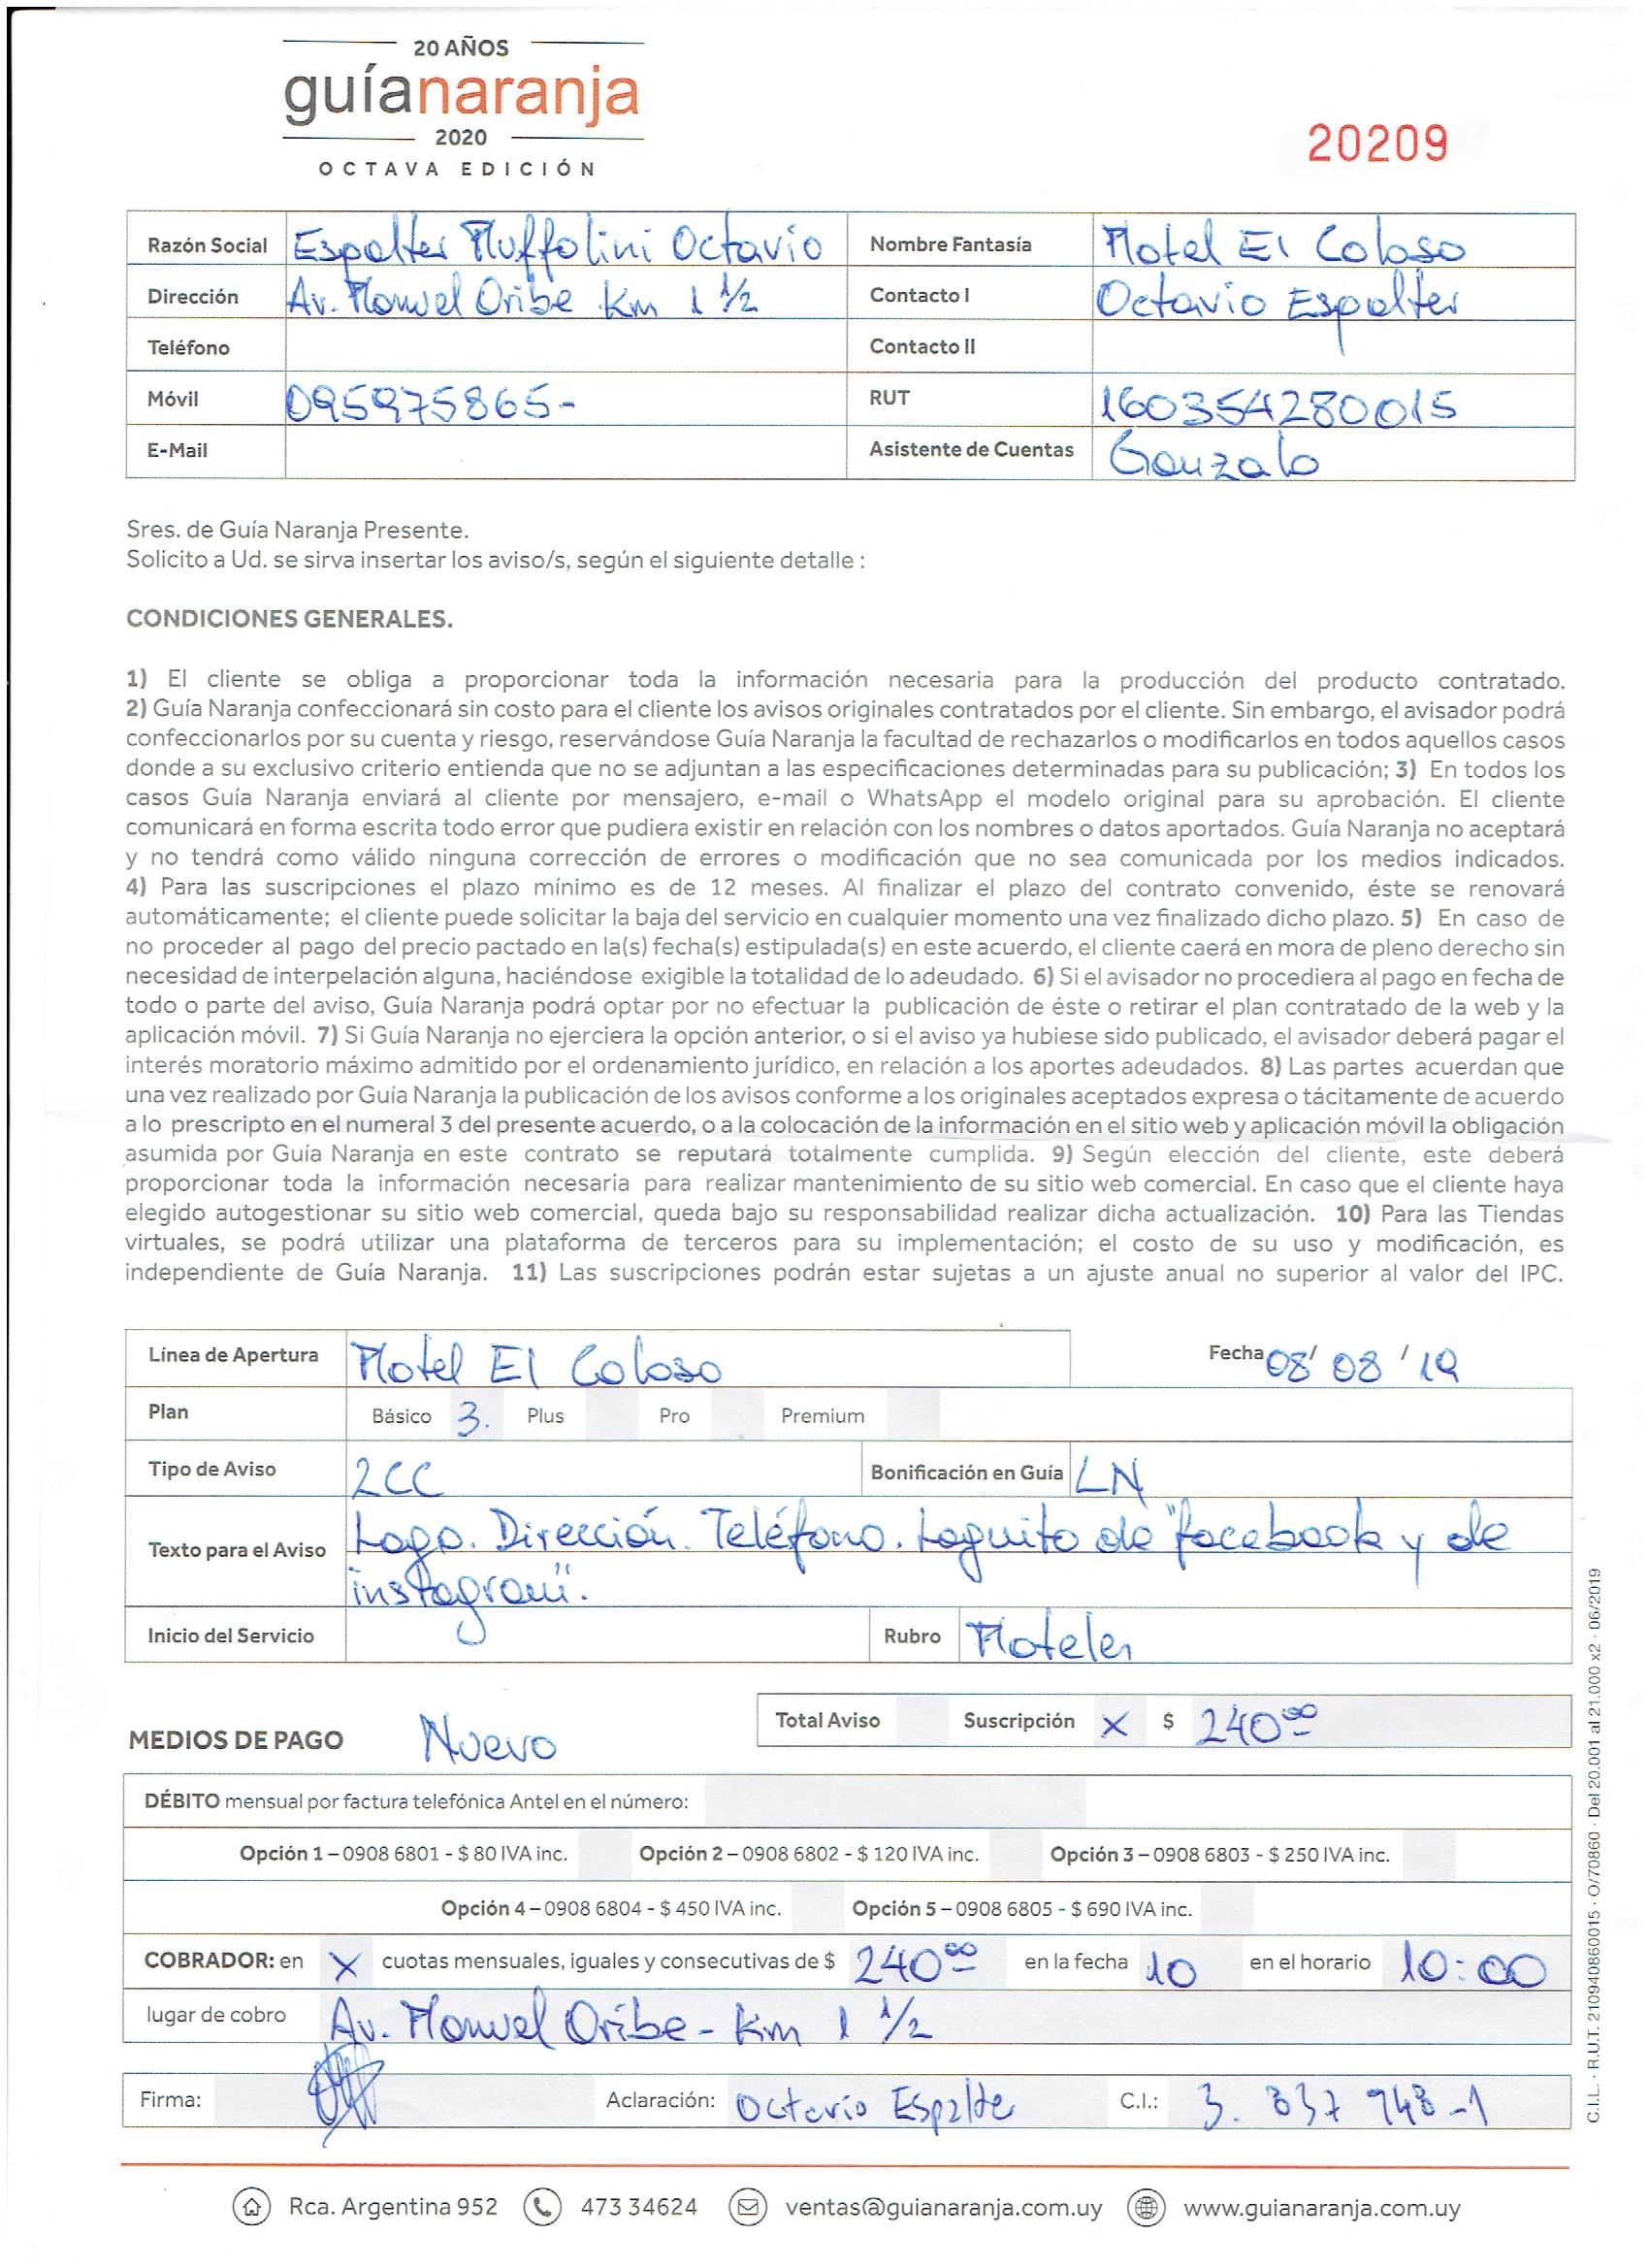 20 AÑOS
guíanaranja
2020
OCTAVA EDICIÓN
20209
Razón Social Espalter Muffolini Octavio Nombre Fantasía Motel El Coloso
Dirección Av. Manuel Oribe Km 1 1/2 Contacto I Octavio Espalter
Teléfono Contacto II
Móvil 095975865- RUT 160354280015
E-Mail Asistente de Cuentas Gonzalo
Sres. de Guía Naranja Presente.
Solicito a Ud. se sirva insertar los aviso/s, según el siguiente detalle :
CONDICIONES GENERALES.
1) El cliente se obliga a proporcionar toda la información necesaria para la producción del producto contratado.
2) Guía Naranja confeccionará sin costo para el cliente los avisos originales contratados por el cliente. Sin embargo, el avisador podrá
confeccionarlos por su cuenta y riesgo, reservándose Guía Naranja la facultad de rechazarlos o modificarlos en todos aquellos casos
donde a su exclusivo criterio entienda que no se adjuntan a las especificaciones determinadas para su publicación; 3) En todos los
casos Guía Naranja enviará al cliente por mensajero, e-mail o WhatsApp el modelo original para su aprobación. El cliente
comunicará en forma escrita todo error que pudiera existir en relación con los nombres o datos aportados. Guía Naranja no aceptará
y no tendrá como válido ninguna corrección de errores o modificación que no sea comunicada por los medios indicados.
4) Para las suscripciones el plazo mínimo es de 12 meses. Al finalizar el plazo del contrato convenido, éste se renovará
automáticamente; el cliente puede solicitar la baja del servicio en cualquier momento una vez finalizado dicho plazo. 5) En caso de
no proceder al pago del precio pactado en la(s) fecha(s) estipulada(s) en este acuerdo, el cliente caerá en mora de pleno derecho sin
necesidad de interpelación alguna, haciéndose exigible la totalidad de lo adeudado. 6) Si el avisador no procediera al pago en fecha de
todo o parte del aviso, Guía Naranja podrá optar por no efectuar la publicación de éste o retirar el plan contratado de la web y la
aplicación móvil. 7) Si Guía Naranja no ejerciera la opción anterior, o si el aviso ya hubiese sido publicado, el avisador deberá pagar el
interés moratorio máximo admitido por el ordenamiento jurídico, en relación a los aportes adeudados. 8) Las partes acuerdan que
una vez realizado por Guía Naranja la publicación de los avisos conforme a los originales aceptados expresa o tácitamente de acuerdo
a lo prescripto en el numeral 3 del presente acuerdo, o a la colocación de la información en el sitio web y aplicación móvil la obligación
asumida por Guía Naranja en este contrato se reputará totalmente cumplida. 9) Según elección del cliente, este deberá
proporcionar toda la información necesaria para realizar mantenimiento de su sitio web comercial. En caso que el cliente haya
elegido autogestionar su sitio web comercial, queda bajo su responsabilidad realizar dicha actualización. 10) Para las Tiendas
virtuales, se podrá utilizar una plataforma de terceros para su implementación; el costo de su uso y modificación, es
independiente de Guía Naranja. 11) Las suscripciones podrán estar sujetas a un ajuste anual no superior al valor del IPC.
Línea de Apertura Motel El Coloso Fecha 08/ 08 / 19
Plan Básico 3. Plus Pro Premium
Tipo de Aviso 2CC Bonificación en Guía LN
Texto para el Aviso Logo. Dirección. Teléfono. Loguito de "facebook y de
instagram".
Inicio del Servicio Rubro Moteles
MEDIOS DE PAGO Nuevo Total Aviso Suscripción X $ 240 00
DÉBITO mensual por factura telefónica Antel en el número:
Opción 1 – 0908 6801 - $ 80 IVA inc. Opción 2 – 0908 6802 - $ 120 IVA inc. Opción 3 – 0908 6803 - $ 250 IVA inc.
Opción 4 – 0908 6804 - $ 450 IVA inc. Opción 5 – 0908 6805 - $ 690 IVA inc.
COBRADOR: en X cuotas mensuales, iguales y consecutivas de $ 240 00 en la fecha 10 en el horario 10:00
lugar de cobro Av. Manuel Oribe - Km 1 1/2
Firma: Aclaración: Octavio Espalte C.I.: 3. 837 948-1
Rca. Argentina 952 473 34624 ventas@guianaranja.com.uy www.guianaranja.com.uy
C.I.L. · R.U.T. 210940860015 · O/70860 · Del 20.001 al 21.000 x2 · 06/2019